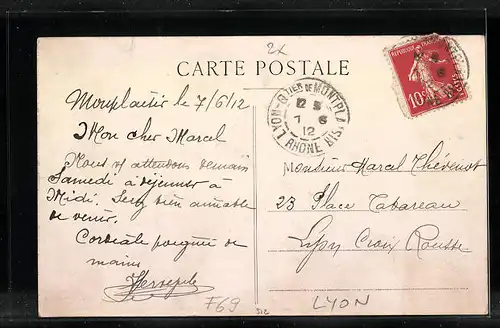 2x
CARTE POSTALE
Monplaisir le 7/6/12
Mon cher Marcel
Nous vs attendons demain
Samedi à déjeuner à
Midi. Serez bien aimable
de venir.
Cordiale poignée de
mains
LYON-QTIER DE MONTPLA
7 6
12
RHONE BIS
REPUBLIQUE FRANÇAISE
10
Monsieur Marcel Thévenot
23 Place Tabareau
Lyon Croix Rousse
F69
312
LYON